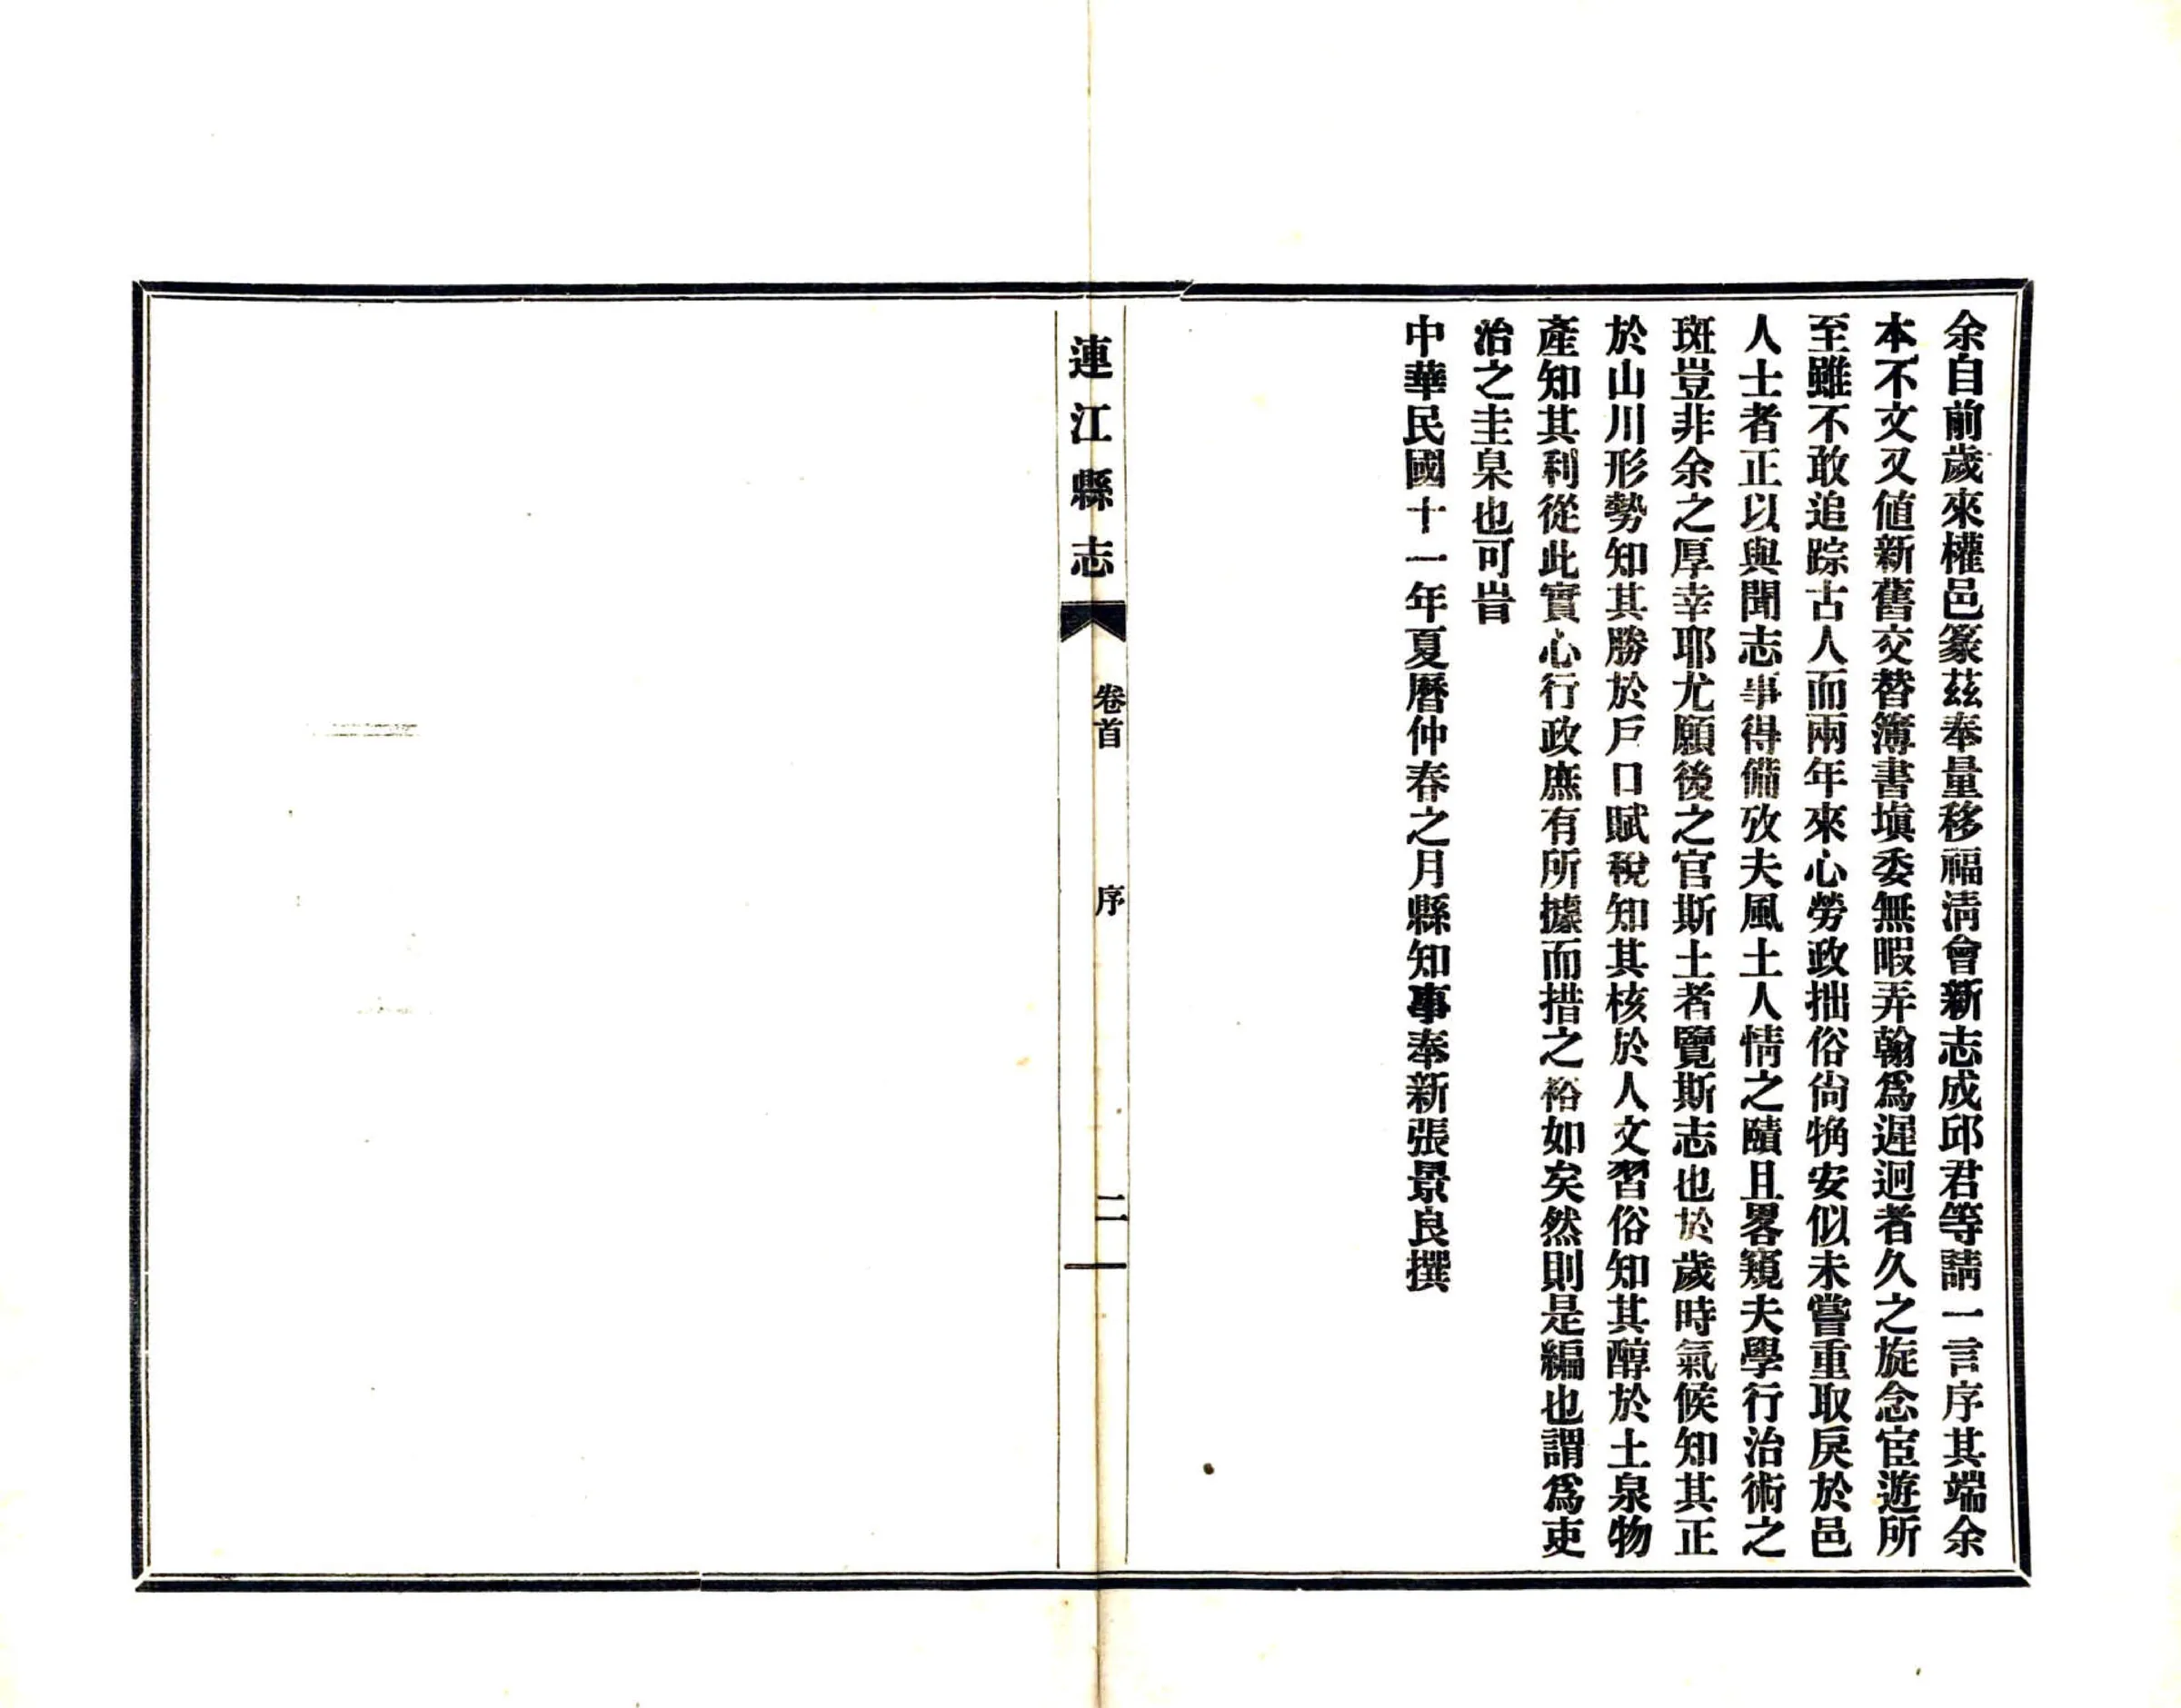 余自前歲來權邑篆茲奉量移福淸會新志成邱君等請一言序其端余
本不文又値新舊交替簿書塡委無暇弄翰爲遲迥者久之旋念宦遊所
至雖不敢追踪古人而兩年來心勞政拙俗尙觕安似未嘗重取戾於邑
人士者正以與聞志事得備攷夫風土人情之賾且畧窺夫學行治術之
斑豈非余之厚幸耶尤願後之官斯土者覽斯志也於歲時氣候知其正
於山川形勢知其勝於戶口賦稅知其核於人文習俗知其醇於土泉物
產知其利從此實心行政庶有所據而措之裕如矣然則是編也謂爲吏
治之圭臬也可旹
中華民國十一年夏曆仲春之月縣知事奉新張景良撰
連江縣志 卷首 序 二